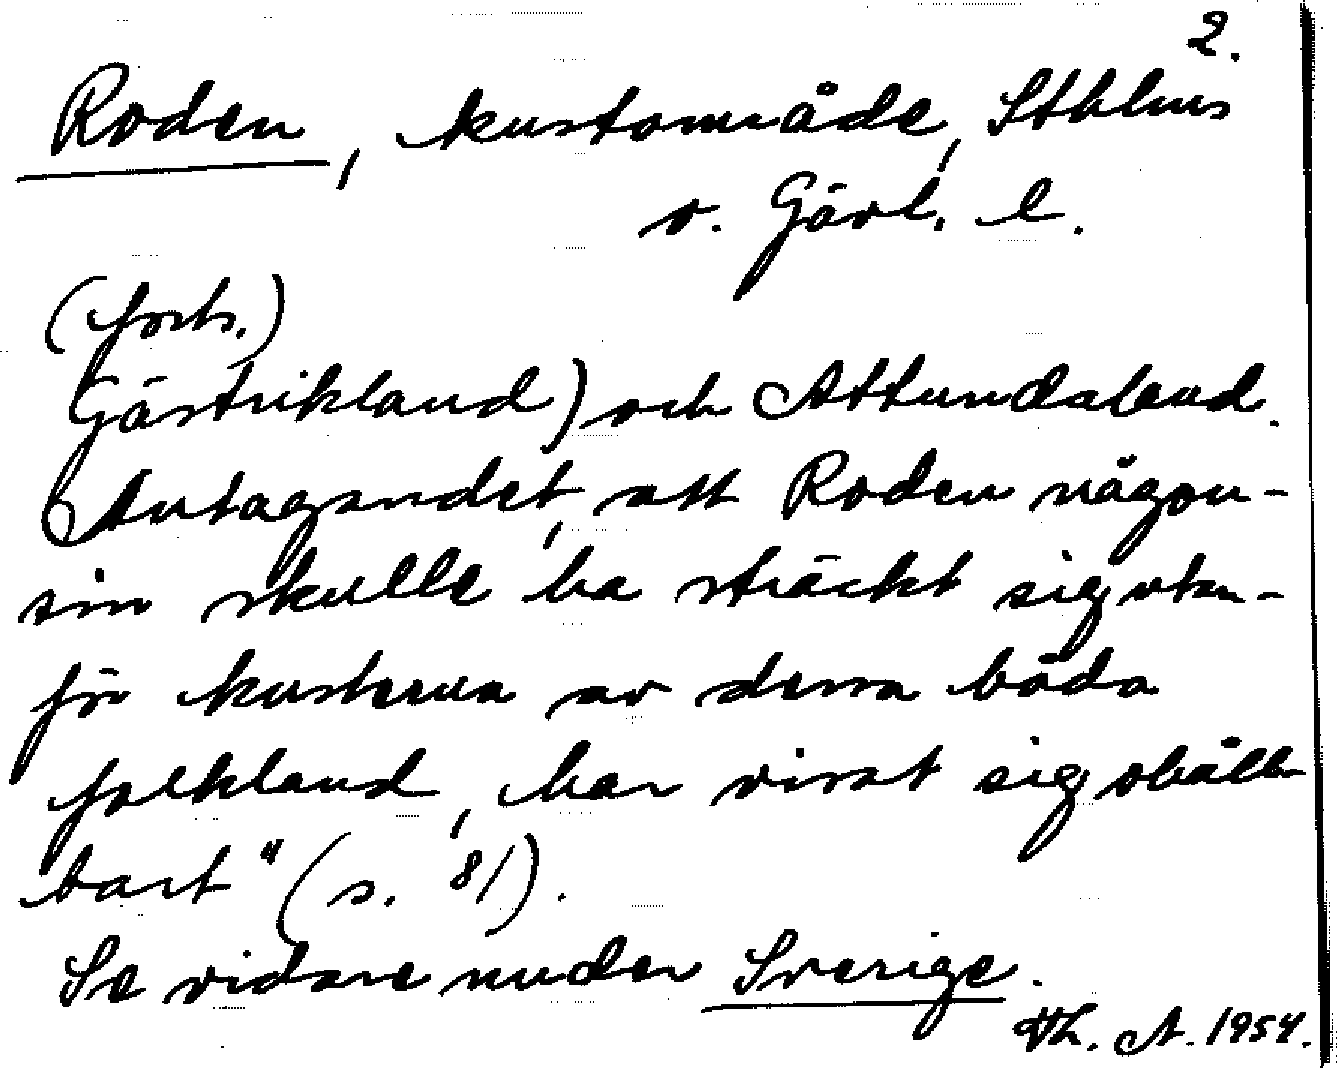 2.
Roden, kustområde, Sthlms
o. Gävl. l.
(forts.)
Gästrikland) och Attundaland.
Antagandet, att Roden någon-
sin skulle ha sträckt sig utan-
för kusterna av dessa båda
folkland, har visat sig ohåll-
bart" (s. 81).
Se vidare under Sverige.
Th. A. 1954.